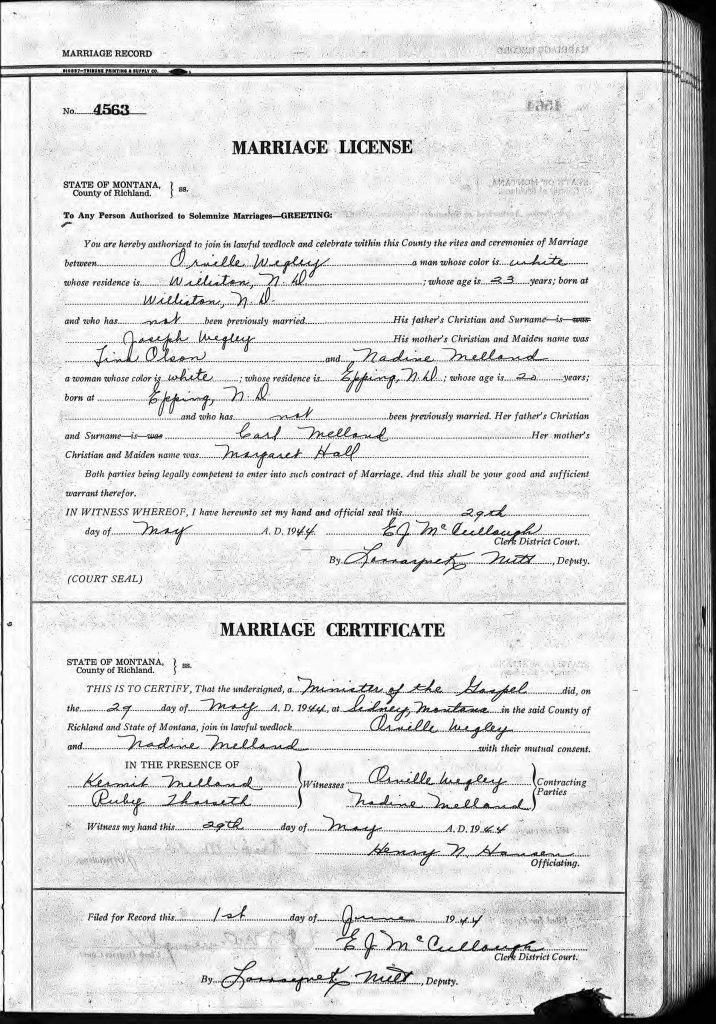 MARRIAGE RECORD
No. 4563
MARRIAGE LICENSE
STATE OF MONTANA, } ss.
County of Richland.
To Any Person Authorized to Solemnize Marriages—GREETING:
You are hereby authorized to join in lawful wedlock and celebrate within this County the rites and ceremonies of Marriage
between Orville Wegley a man whose color is white
whose residence is Williston, N. D. ; whose age is 23 years; born at
Williston, N. D.
and who has not been previously married. His father's Christian and Surname is was
Joseph Wegley His mother's Christian and Maiden name was
Tina Olson and Nadine Melland
a woman whose color is white ; whose residence is Epping, N.D. ; whose age is 20 years;
born at Epping, N. D
and who has not been previously married. Her father's Christian
and Surname is was Carl Melland Her mother's
Christian and Maiden name was Margaret Hall
Both parties being legally competent to enter into such contract of Marriage. And this shall be your good and sufficient
warrant therefor.
IN WITNESS WHEREOF, I have hereunto set my hand and official seal this 29th
day of May A. D. 1944 E J McCullough
Clerk District Court.
By Nutt, Deputy.
(COURT SEAL)
MARRIAGE CERTIFICATE
STATE OF MONTANA, } ss.
County of Richland.
THIS IS TO CERTIFY, That the undersigned, a Minister of the Gospel did, on
the 29 day of May A. D. 1944, at Sidney, Montana in the said County of
Richland and State of Montana, join in lawful wedlock Orville Wegley
and Nadine Melland with their mutual consent.
IN THE PRESENCE OF
Kermit Melland } Witnesses Orville Wegley } Contracting
Ruby Thorseth Nadine Melland Parties
Witness my hand this 29th day of May A. D. 1944
Henry N Hansen
Officiating.
Filed for Record this 1st day of June 1944
E J McCullough
Clerk District Court.
By Nutt, Deputy.